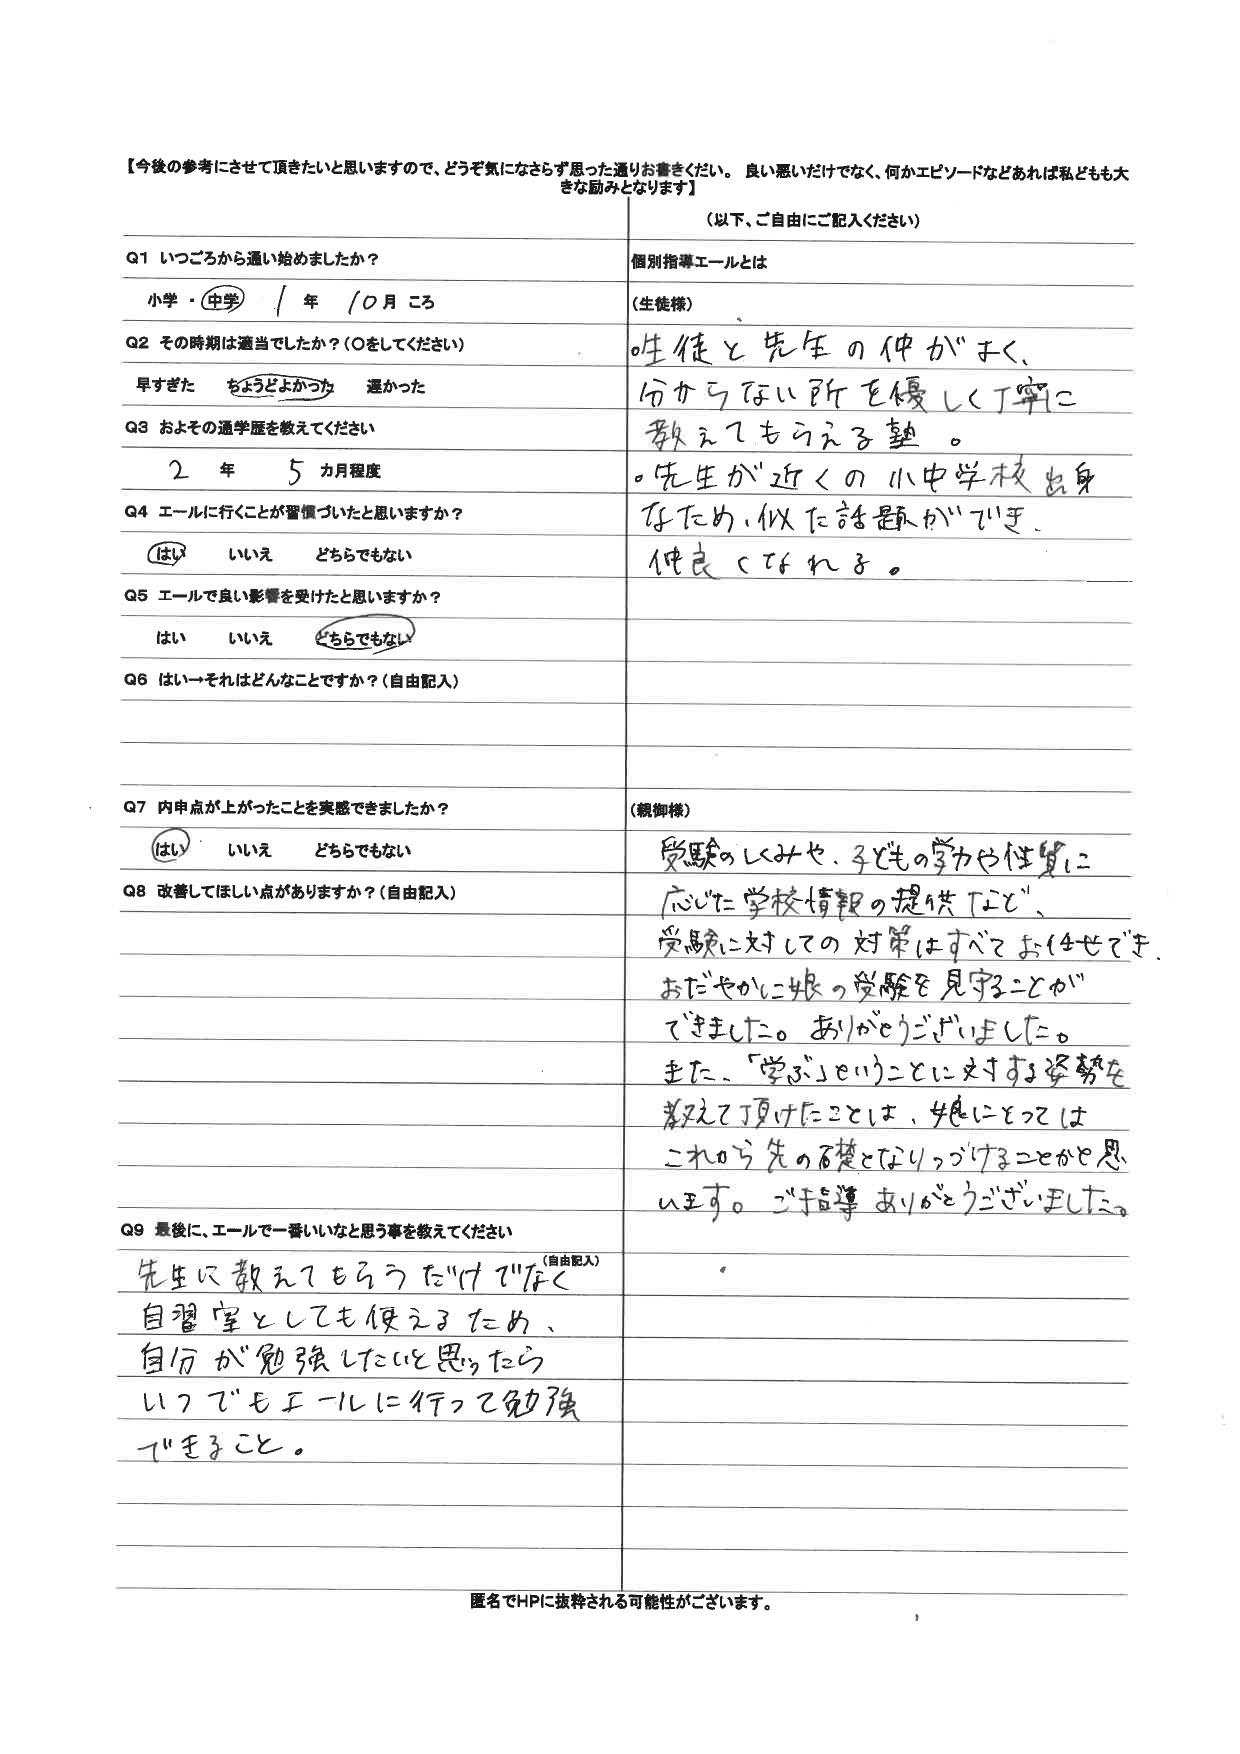 【今後の参考にさせて頂きたいと思いますので、どうぞ気になさらず思った通りお書きくだい。 良い悪いだけでなく、何かエピソードなどあれば私どもも大
きな励みとなります】
Q1 いつごろから通い始めましたか？
小学・中学 1 年 10月 ころ
Q2 その時期は適当でしたか？(○をしてください)
早すぎた ちょうどよかった 遅かった
Q3 およその通学歴を教えてください
2 年 5 カ月程度
Q4 エールに行くことが習慣づいたと思いますか？
はい いいえ どちらでもない
Q5 エールで良い影響を受けたと思いますか？
はい いいえ どちらでもない
Q6 はい→それはどんなことですか？(自由記入)
Q7 内申点が上がったことを実感できましたか？
はい いいえ どちらでもない
Q8 改善してほしい点がありますか？(自由記入)
Q9 最後に、エールで一番いいなと思う事を教えてください
(自由記入)
先生に教えてもらうだけでなく
自習室としても使えるため、
自分が勉強したいと思ったら
いつでもエールに行って勉強
できること。
(以下、ご自由にご記入ください)
個別指導エールとは
(生徒様)
。生徒と先生の仲がよく、
分からない所を優しく丁寧に
教えてもらえる塾。
。先生が近くの小中学校出身
なため、似た話題ができ、
仲良くなれる。
(親御様)
受験のしくみや、子どもの学力や性質に
応じた学校情報の提供など、
受験に対しての対策はすべてお任せでき、
おだやかに娘の受験を見守ることが
できました。ありがとうございました。
また、「学ぶ」ということに対する姿勢を
教えて頂けたことは、娘にとっては
これから先の礎となりつづけることかと思
います。ご指導ありがとうございました。
匿名でHPに抜粋される可能性がございます。